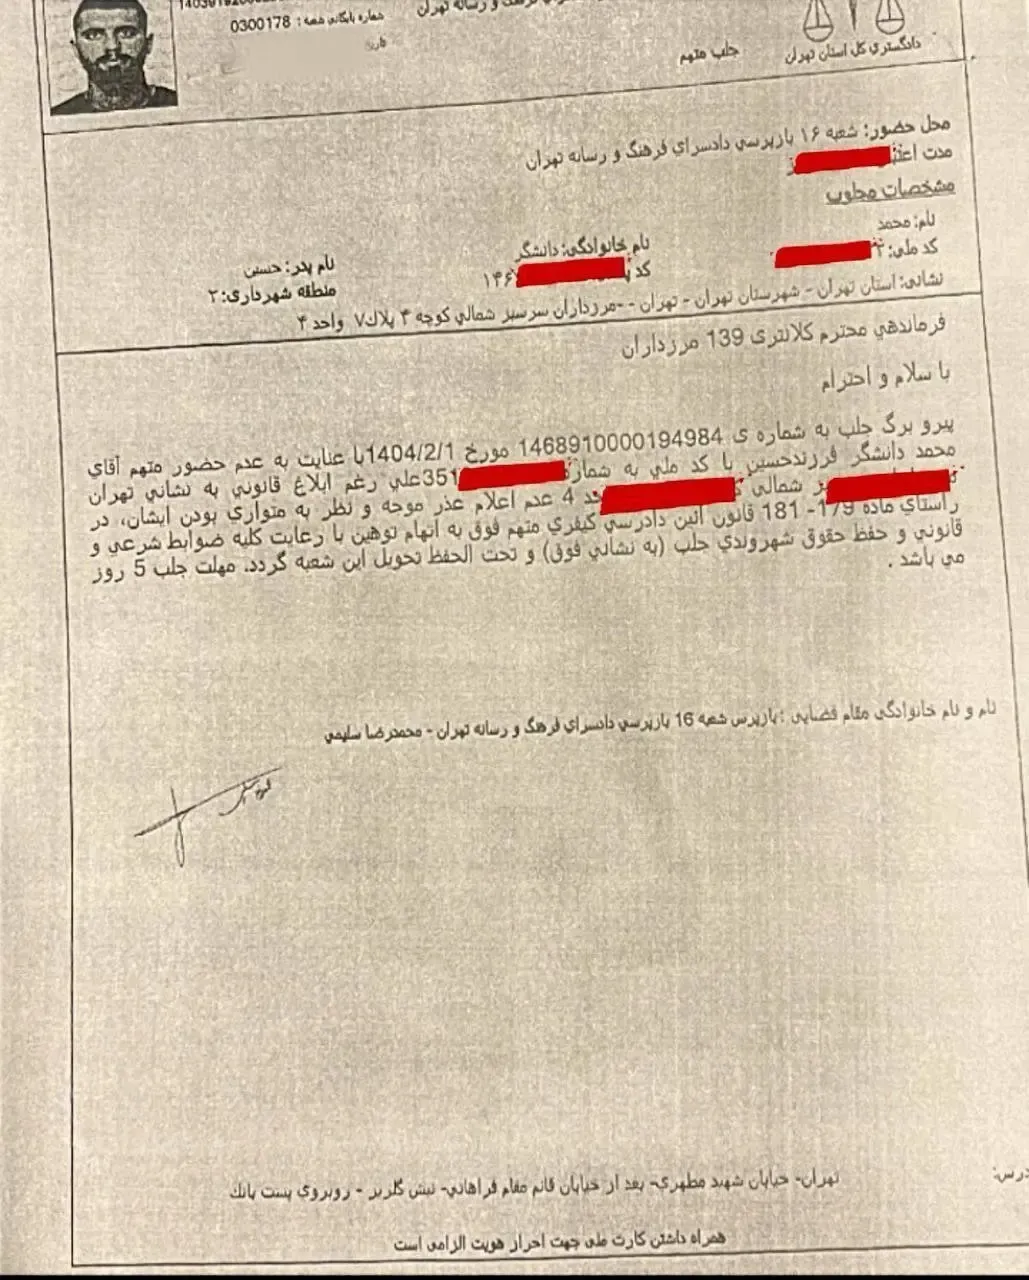 شماره بایگانی شعبه: 0300178
فرهنگ و رسانه تهران
تاریخ
دادگستری کل استان تهران
جلب متهم
محل حضور: شعبه ۱۶ بازپرسی دادسرای فرهنگ و رسانه تهران
مدت
مشخصات مجلوب
نام: محمد نام خانوادگی: دانشگر نام پدر: حسین
کد ملی: ۱۴۶ منطقه شهرداری: ۲
نشانی: استان تهران - شهرستان تهران - تهران - -مرزداران سرسبز شمالی کوچه ۴ پلاک۷ واحد ۴
فرماندهي محترم کلانتری 139 مرزداران
با سلام و احترام
پیرو برگ جلب به شماره ی 1468910000194984 مورخ 1404/2/1با عنایت به عدم حضور متهم آقای
محمد دانشگر فرزندحسین با کد ملي به شمار 351علي رغم ابلاغ قانوني به نشاني تهران
شمالي 4 عدم اعلام عذر موجه و نظر به متواري بودن ایشان، در
راستای ماده 179- 181 قانون آئین دادرسي کیفري متهم فوق به اتهام توهین با رعایت کلیه ضوابط شرعي و
قانوني و حفظ حقوق شهروندي جلب (به نشاني فوق) و تحت الحفظ تحویل این شعبه گردد. مهلت جلب 5 روز
مي باشد .
نام و نام خانوادگی مقام قضایی : بازپرس شعبه 16 بازپرسي دادسراي فرهنگ و رسانه تهران - محمدرضا سلیمي
درس: تهران- خیابان شهید مطهري- بعد از خیابان قائم مقام فراهاني- نبش گلریز - روبروي پست بانك
همراه داشتن کارت ملی جهت احراز هویت الزامی است